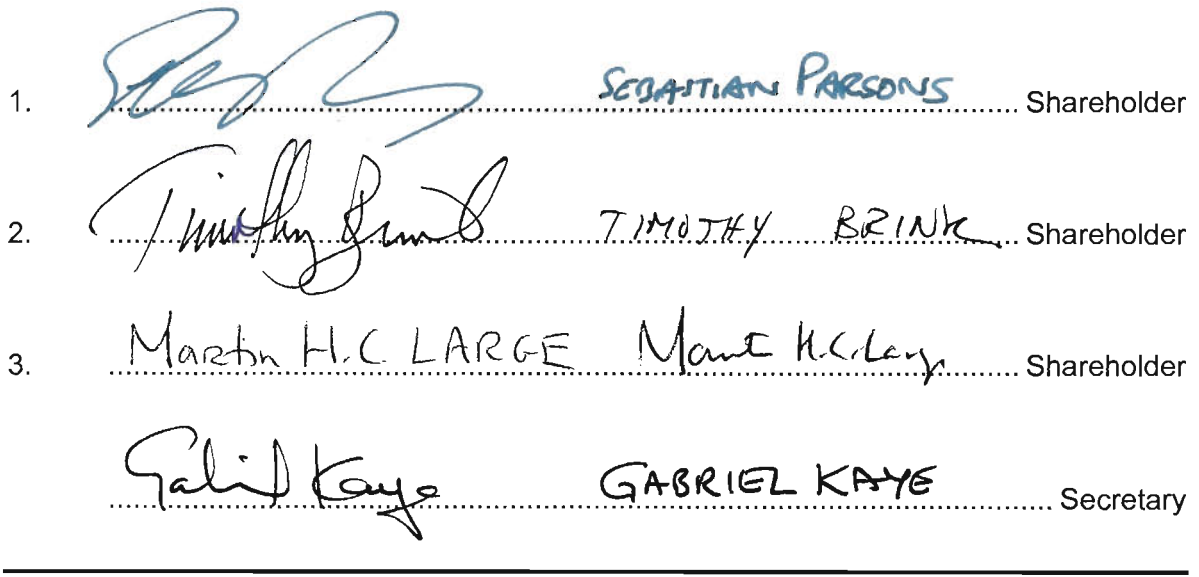 1. SEBASTIAN PARSONS Shareholder
2. Timothy Brink TIMOTHY BRINK Shareholder
3. Martin H.C. LARGE Martin H.C. Large Shareholder
Gabriel Kaye GABRIEL KAYE Secretary